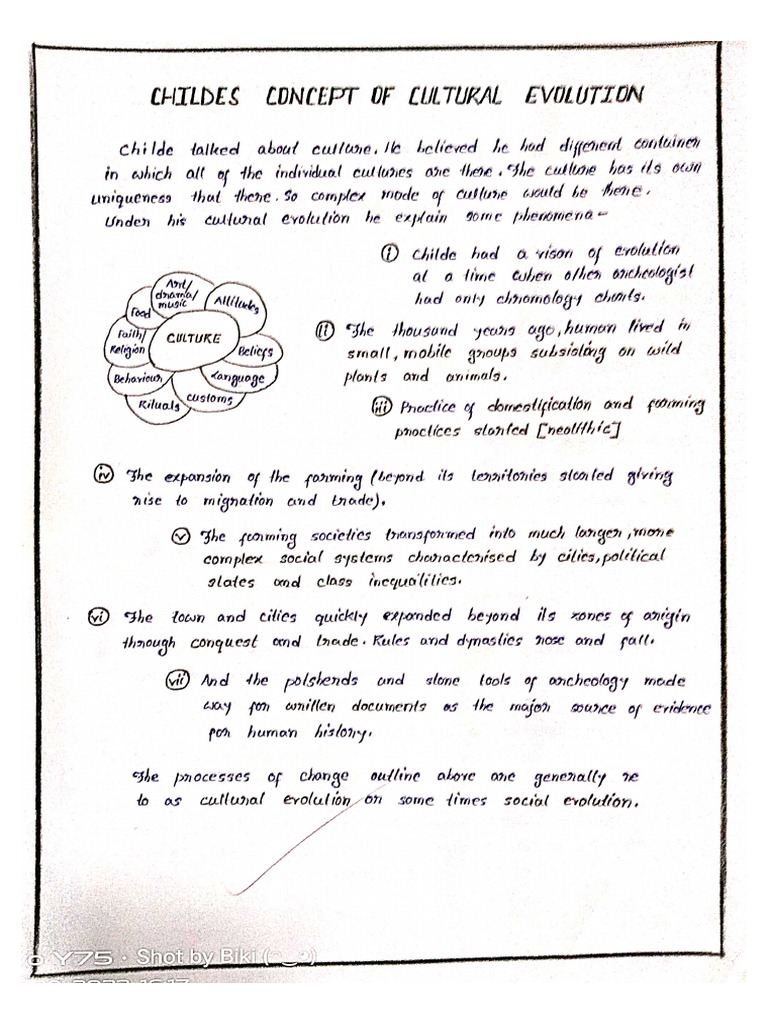 CHILDES CONCEPT OF CULTURAL EVOLUTION
Childe talked about culture. He believed he had different container
in which all of the individual cultures are there. The culture has its own
uniqueness that there. So complex mode of culture would be there.
Under his cultural evolution he explain some phenomena-
i Childe had a vison of evolution
at a time when other archeologist
had only chromology charts.
Art/
drama/
music
Attitudes
Food
Faith/
Religion
CULTURE
Beliefs
Behaviour
Language
Rituals
customs
ii The thousand years ago, human lived in
small, mobile groups subsisting on wild
plants and animals.
iii Practice of domestification and farming
practices started [neolithic]
iv The expansion of the farming (beyond its territories started giving
rise to migration and trade).
v The farming societies transformed into much larger, more
complex social systems characterised by cities, political
states and class inequalities.
vi The town and cities quickly expanded beyond its zones of origin
through conquest and trade. Rules and dynasties rose and fall.
vii And the potsherds and stone tools of archeology made
way for written documents as the major source of evidence
for human history.
The processes of change outline above are generally re
to as cultural evolution or some times social evolution.
Y75 · Shot by Biki